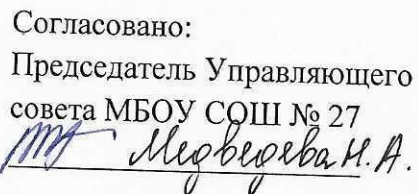 Согласовано:
Председатель Управляющего
совета МБОУ СОШ № 27
Медведева Н. А.